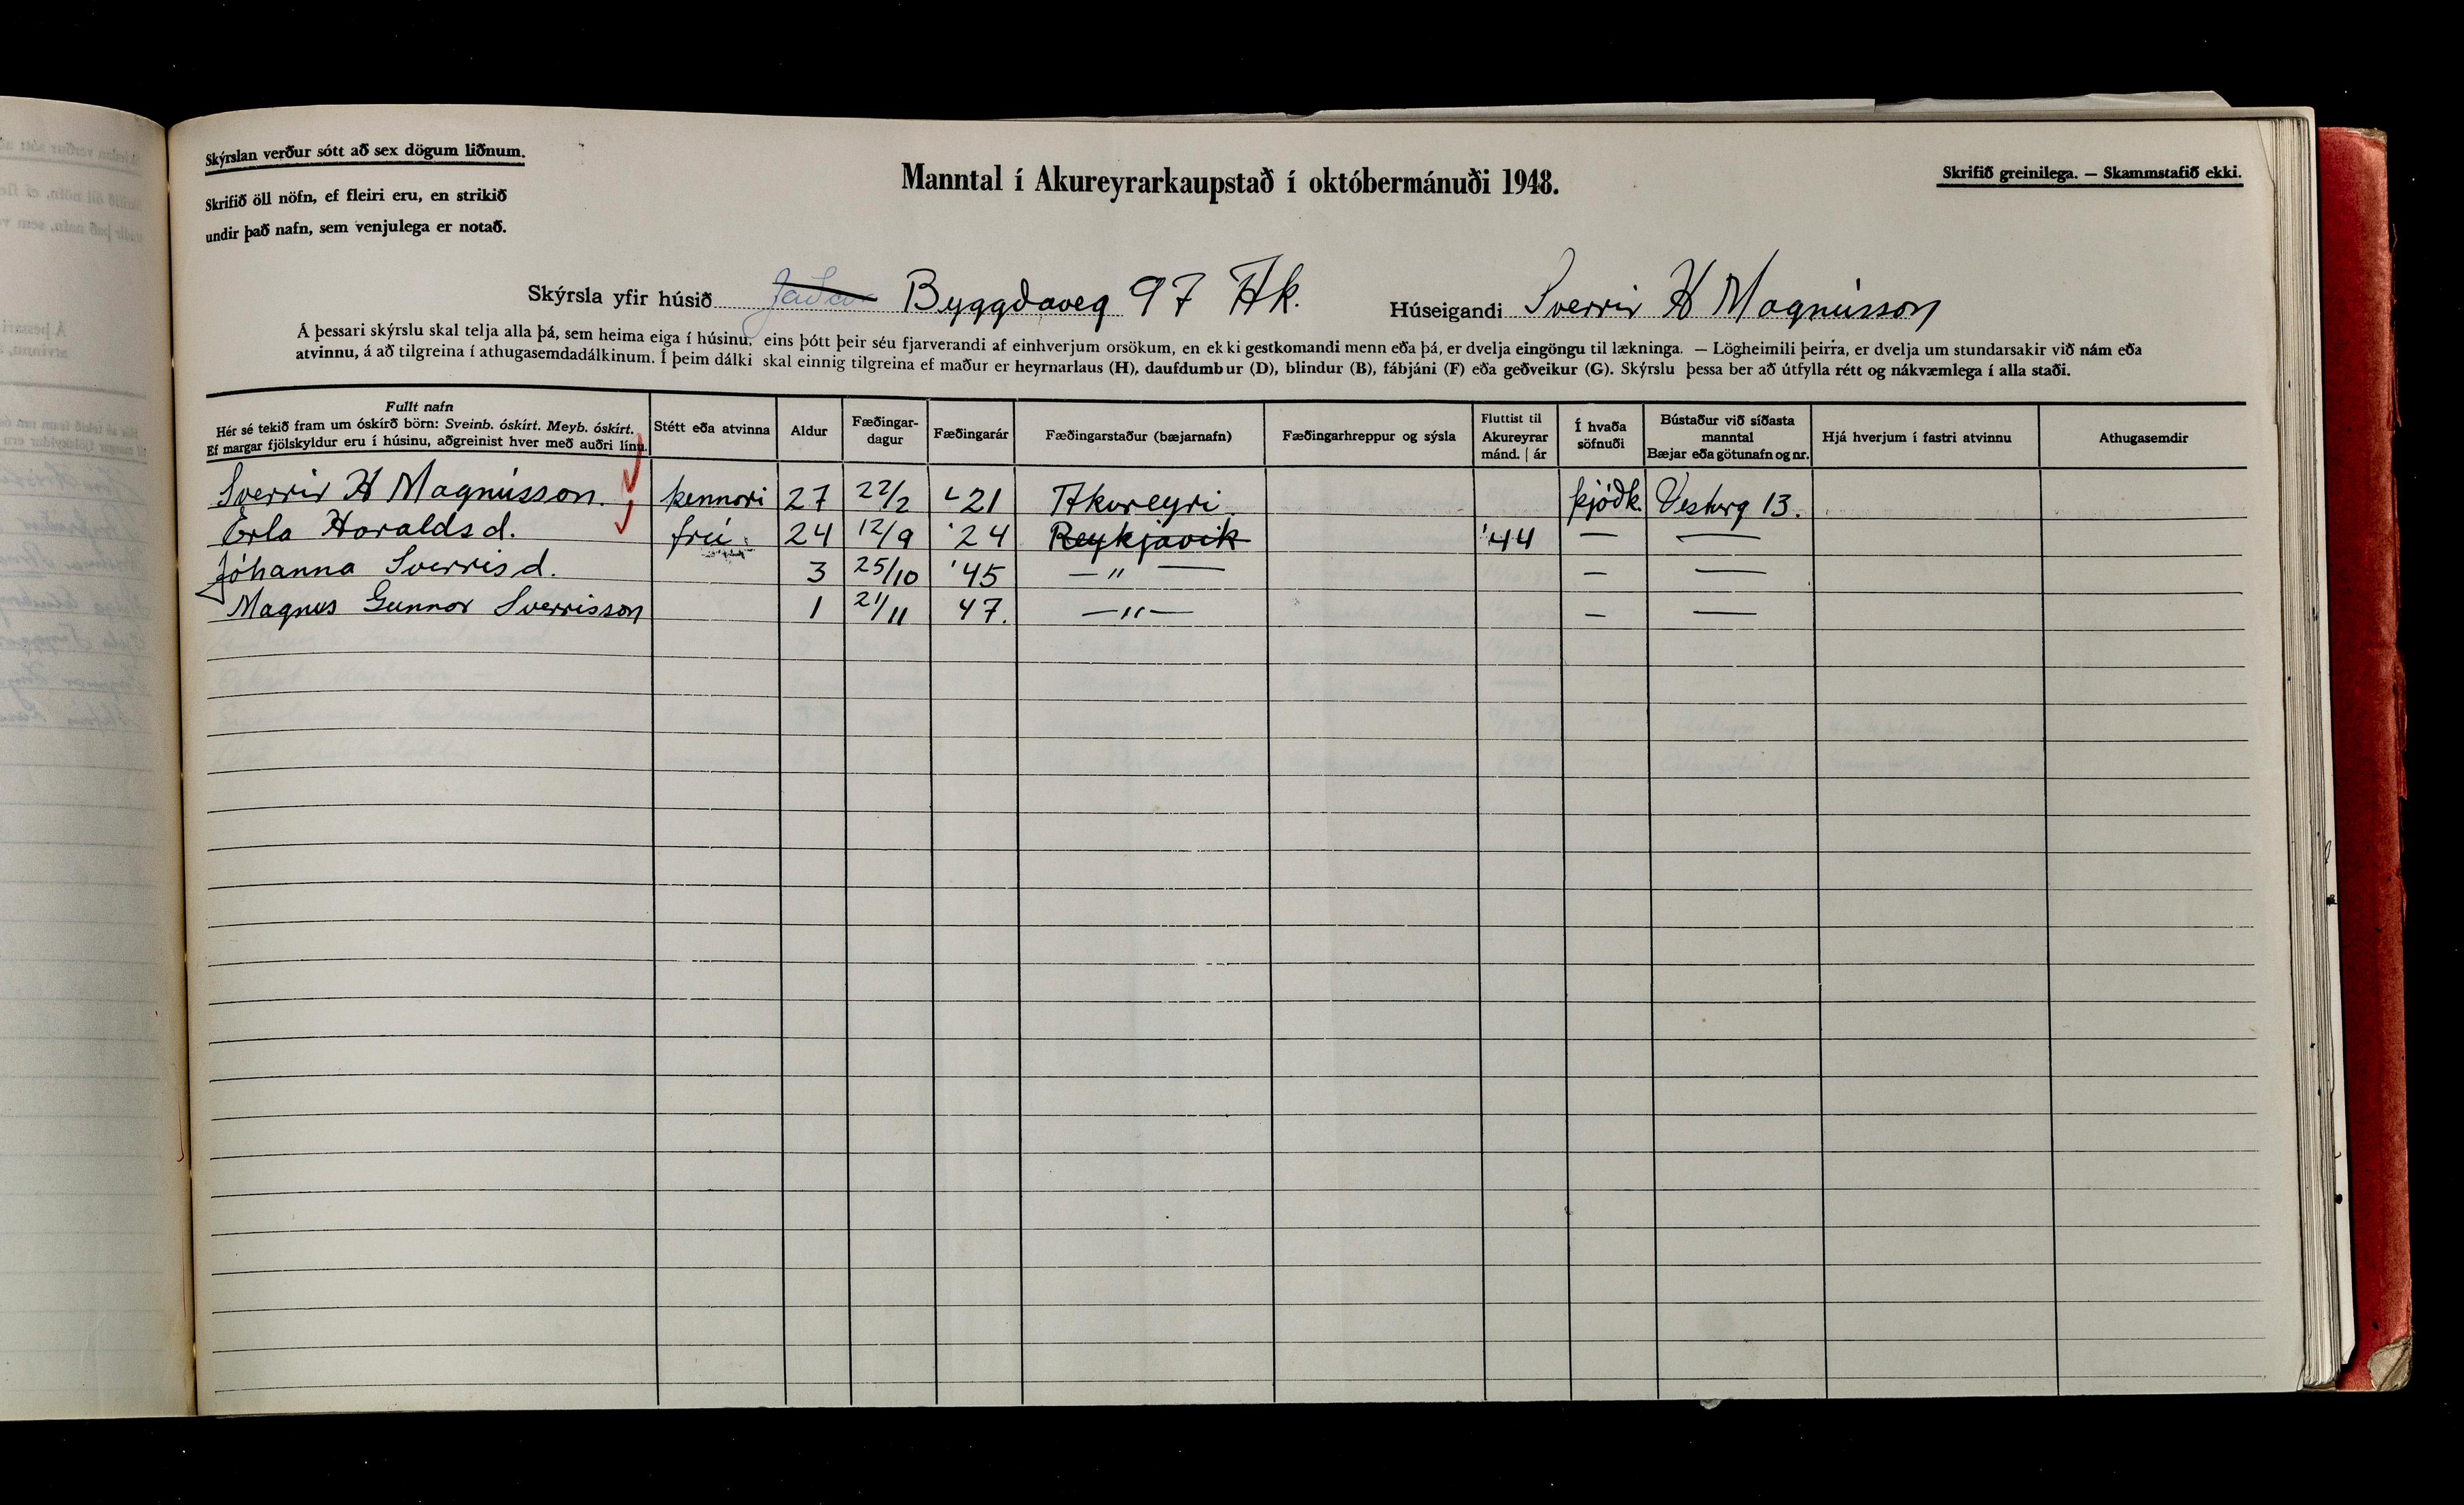 Skýrslan verður sótt að sex dögum liðnum.
Skrifið öll nöfn, ef fleiri eru, en strikið
undir það nafn, sem venjulega er notað.
Manntal í Akureyrarkaupstað í októbermánuði 1948.
Skrifið greinilega. — Skammstafið ekki.
Skýrsla yfir húsið Jaðar Byggðaveg 97 Ak. Húseigandi Sverrir H Magnússon
Á þessari skýrslu skal telja alla þá, sem heima eiga í húsinu, eins þótt þeir séu fjarverandi af einhverjum orsökum, en ekki gestkomandi menn eða þá, er dvelja eingöngu til lækninga. — Lögheimili þeirra, er dvelja um stundarsakir við nám eða
atvinnu, á að tilgreina í athugasemdadálkinum. Í þeim dálki skal einnig tilgreina ef maður er heyrnarlaus (H), daufdumbur (D), blindur (B), fábjáni (F) eða geðveikur (G). Skýrslu þessa ber að útfylla rétt og nákvæmlega í alla staði.
Fullt nafn
Hér sé tekið fram um óskírð börn: Sveinb. óskírt. Meyb. óskírt.
Ef margar fjölskyldur eru í húsinu, aðgreinist hver með auðri línu.
Stétt eða atvinna
Aldur
Fæðingar-
dagur
Fæðingarár
Fæðingarstaður (bæjarnafn)
Fæðingarhreppur og sýsla
Fluttist til
Akureyrar
mánd. | ár
Í hvaða
söfnuði
Bústaður við síðasta
manntal
Bæjar eða götunafn og nr.
Hjá hverjum í fastri atvinnu
Athugasemdir
Sverrir H Magnússon. kennari 27 22/2 '21 Akureyri. þjóðk. Vesturg 13.
Erla Haraldsd. frú. 24 12/9 '24 Reykjavik '44 — —
Jóhanna Sverrisd. 3 25/10 '45 —"— — —
Magnus Gunnar Sverrisson 1 21/11 47. —"— — —